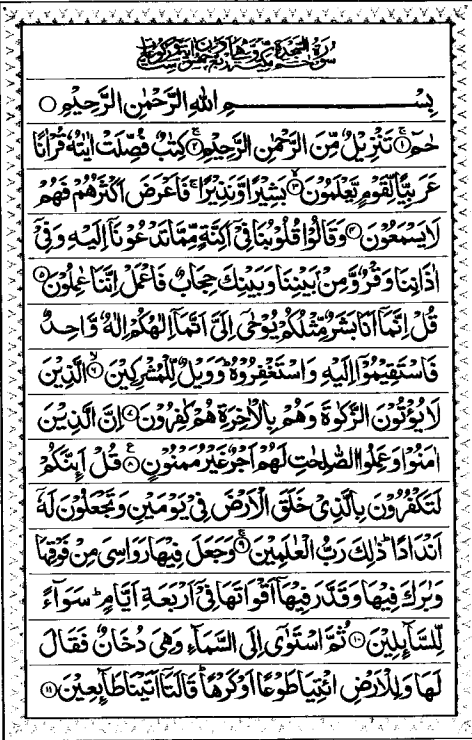 بِسْــــــمِ اللهِ الرَّحْمٰنِ الرَّحِيْمِ ○
حٰمٓ ۚ﴿۱﴾ تَنْزِيْلٌ مِّنَ الرَّحْمٰنِ الرَّحِيْمِ ۚ﴿۲﴾ كِتٰبٌ فُصِّلَتْ اٰيٰتُهٗ قُرْاٰنًا
عَرَبِيًّا لِّقَوْمٍ يَّعْلَمُوْنَ ۙ﴿۳﴾ بَشِيْرًا وَّنَذِيْرًا ۚ فَاَعْرَضَ اَكْثَرُهُمْ فَهُمْ
لَا يَسْمَعُوْنَ ﴿۴﴾ وَقَالُوْا قُلُوْبُنَا فِيْٓ اَكِنَّةٍ مِّمَّا تَدْعُوْنَاۤ اِلَيْهِ وَفِيْۤ
اٰذَانِنَا وَقْرٌ وَّمِنْۢ بَيْنِنَا وَبَيْنِكَ حِجَابٌ فَاعْمَلْ اِنَّنَا عٰمِلُوْنَ ﴿۵﴾
قُلْ اِنَّمَاۤ اَنَا بَشَرٌ مِّثْلُكُمْ يُوْحٰۤى اِلَيَّ اَنَّمَاۤ اِلٰهُكُمْ اِلٰهٌ وَّاحِدٌ
فَاسْتَقِيْمُوْۤا اِلَيْهِ وَاسْتَغْفِرُوْهُ ؕ وَوَيْلٌ لِّلْمُشْرِكِيْنَ ۙ﴿۶﴾ الَّذِيْنَ
لَا يُؤْتُوْنَ الزَّكٰوةَ وَهُمْ بِالْاٰخِرَةِ هُمْ كٰفِرُوْنَ ﴿۷﴾ اِنَّ الَّذِيْنَ
اٰمَنُوْا وَعَمِلُوا الصّٰلِحٰتِ لَهُمْ اَجْرٌ غَيْرُ مَمْنُوْنٍ ﴿۸﴾ قُلْ اَئِنَّكُمْ
لَتَكْفُرُوْنَ بِالَّذِيْ خَلَقَ الْاَرْضَ فِيْ يَوْمَيْنِ وَتَجْعَلُوْنَ لَهٗۤ
اَنْدَادًا ؕ ذٰلِكَ رَبُّ الْعٰلَمِيْنَ ۚ﴿۹﴾ وَجَعَلَ فِيْهَا رَوَاسِيَ مِنْ فَوْقِهَا
وَبٰرَكَ فِيْهَا وَقَدَّرَ فِيْهَاۤ اَقْوَاتَهَا فِيْۤ اَرْبَعَةِ اَيَّامٍ ؕ سَوَآءً
لِّلسَّآئِلِيْنَ ﴿۱۰﴾ ثُمَّ اسْتَوٰۤى اِلَى السَّمَآءِ وَهِيَ دُخَانٌ فَقَالَ
لَهَا وَلِلْاَرْضِ ائْتِيَا طَوْعًا اَوْ كَرْهًا ؕ قَالَتَاۤ اَتَيْنَا طَآئِعِيْنَ ﴿۱۱﴾